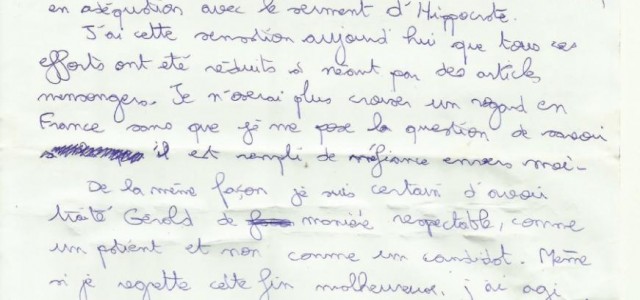 en adéquation avec le serment d'Hippocrate.
J'ai cette sensation aujourd'hui que tous ces
efforts ont été réduits à néant par des articles
mensongers. Je n'oserai plus croiser un regard en
France sans que je me pose la question de savoir
il est rempli de méfiance envers moi.
De la même façon je suis certain d'avoir
traité Gérald de manière respectable, comme
un patient et non comme un candidat. Même
si je regrette cette fin malheureuse, j'ai agi